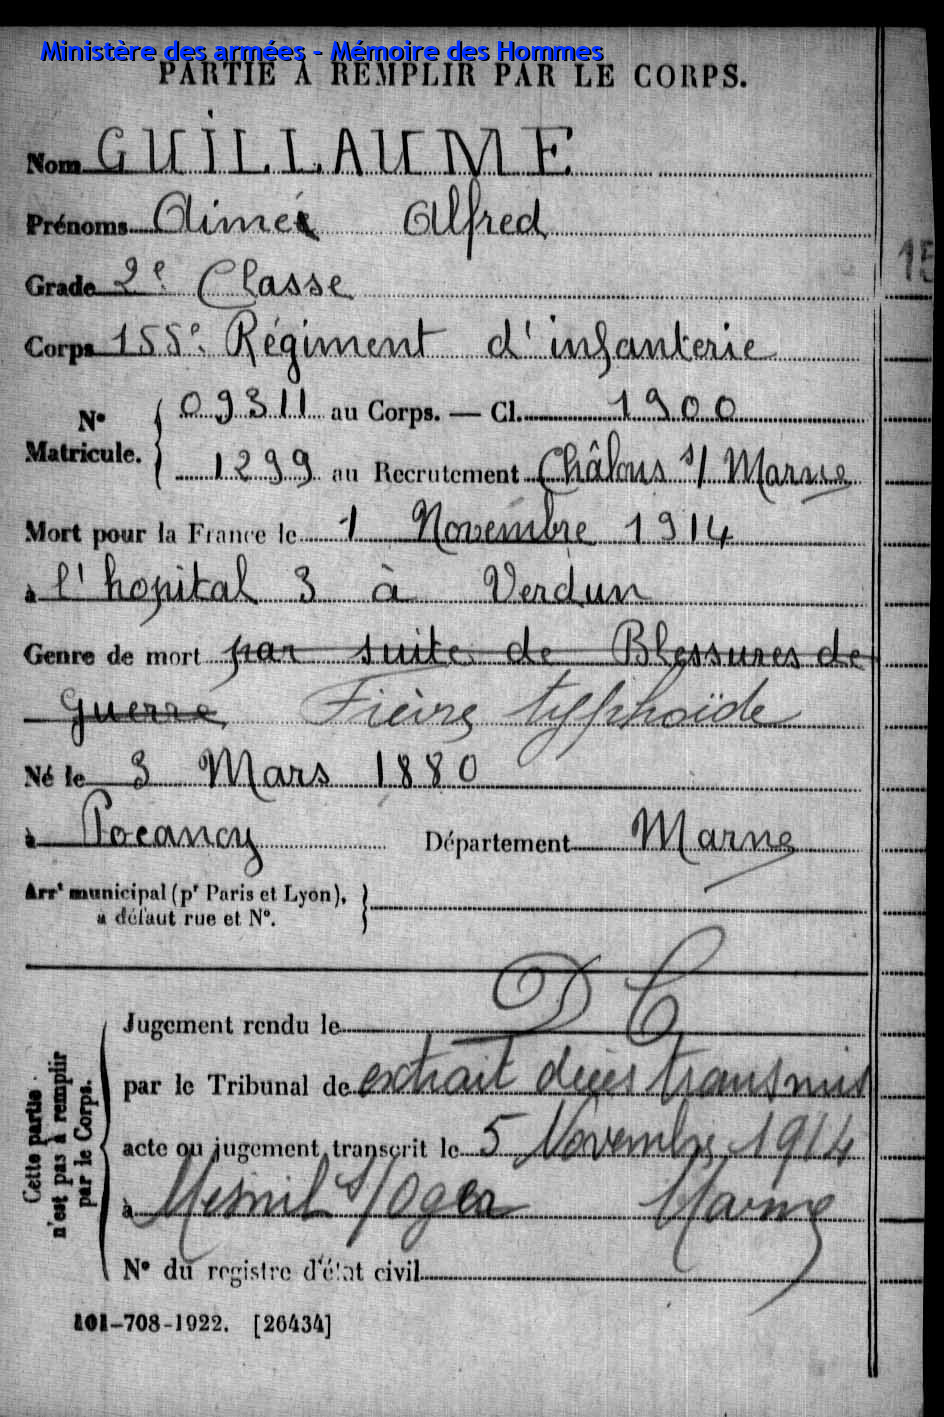 Ministère des armées - Mémoire des Hommes
PARTIE À REMPLIR PAR LE CORPS.
Nom GUILLAUME
Prénoms Aimé Alfred
Grade 2e Classe
15
Corps 155e Régiment d'infanterie
N° Matricule. { 09311 au Corps. — Cl. 1900
1299 au Recrutement Châlons s/ Marne
Mort pour la France le 1 Novembre 1914
à l'hopital 3 à Verdun
Genre de mort par suite de Blessures de
Guerre Fièvre typhoïde
Né le 3 Mars 1880
à Pocancy Département Marne
Arrt municipal (pr Paris et Lyon),
à défaut rue et N°.
DC
Jugement rendu le
par le Tribunal de extrait décès transmis
acte ou jugement transcrit le 5 Novembre 1914
à Mesnil s/ Oger Marne
N° du registre d'état civil
Cette partie
n'est pas à remplir
par le Corps.
101-708-1922. [26434]